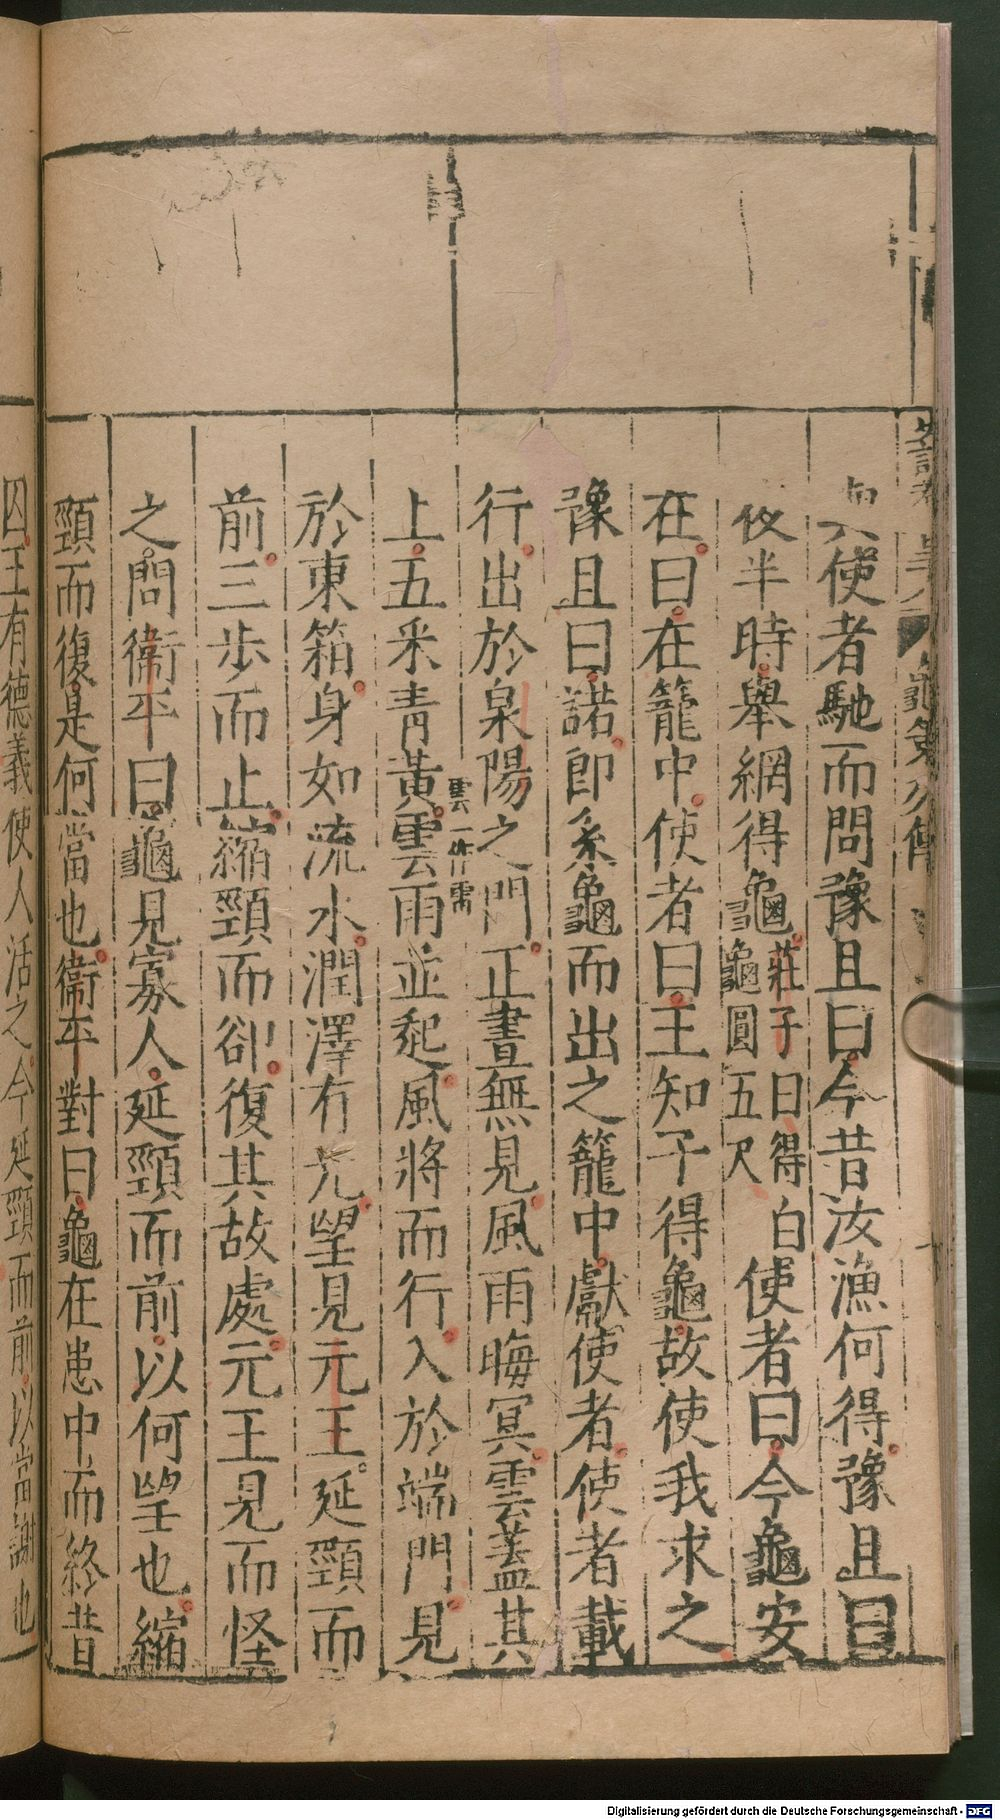 與使者馳而問豫且曰今昔汝漁何得豫且曰
夜半時舉網得龜莊子曰得白龜圓五尺使者曰今龜安
在曰在籠中使者曰王知子得龜故使我求之
豫且曰諾即系龜而出之籠中獻使者使者載
行出於泉陽之門正晝無見風雨晦冥雲蓋其
上五采青黃雲一作電雲雨並起風將而行入於端門見
於東箱身如流水潤澤有光望見元王延頸而
前三步而止縮頸而卻復其故處元王見而怪
之問衛平曰龜見寡人延頸而前以何望也縮
頸而復是何當也衛平對曰龜在患中而終昔
囚王有德義使人活之今延頸而前以當謝也
Digitalisierung gefördert durch die Deutsche Forschungsgemeinschaft - DFG